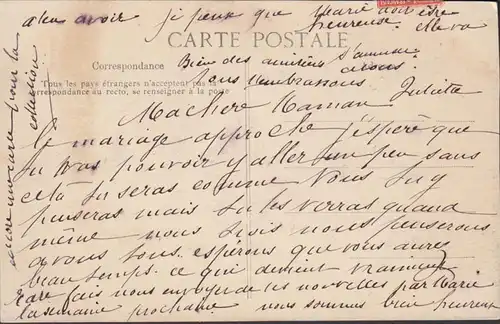 a les avoir je pense que Marie doit être
heureuse. elle va
CARTE POSTALE
Correspondance
Bien des amitiés s'amuser
a vous.
Tous les pays étrangers n'acceptent pas la
correspondance au recto, se renseigner à la poste
Tous t'embrassons
Juliette
Ma chère Maman
le mariage approche j'espère que
tu vas pouvoir y aller un peu sans
cela tu seras comme nous tu y
penseras mais tu les verras quand
même nous ici nous penserons
a vous tous. espérons que vous aurez
beau temps. ce qui devient vraiment
rare fais nous envoyer de tes nouvelles par Marie
la semaine prochaine nous sommes bien heureux
encore une carte pour la
collection